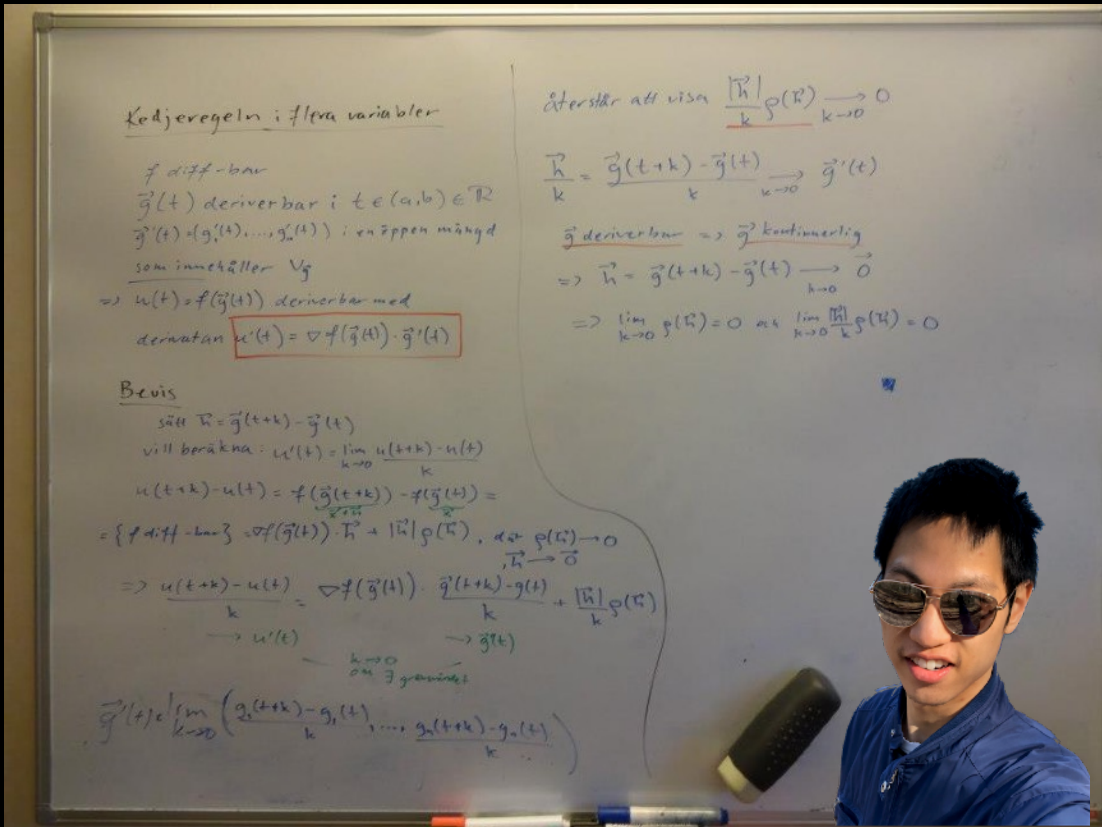 Kedjeregeln i flera variabler
f diff-bar
g⃗(t) deriverbar i t ∈ (a,b) ∈ ℝ
g⃗'(t) = (g₁'(t),...,gₙ'(t)) i en öppen mängd
som innehåller Vg
=> u(t) = f(g⃗(t)) deriverbar med
derivatan u'(t) = ∇f(g⃗(t)) · g⃗'(t)
Bevis
sätt h⃗ = g⃗(t+k) - g⃗(t)
vill beräkna: u'(t) = lim k→0 (u(t+k) - u(t))/k
u(t+k) - u(t) = f(g⃗(t+k)) - f(g⃗(t)) =
= {f diff-bar} = ∇f(g⃗(t)) · h⃗ + |h⃗| ρ(h⃗), där ρ(h⃗) → 0
, h⃗ → 0⃗
=> (u(t+k) - u(t))/k = ∇f(g⃗(t)) · (g⃗(t+k) - g(t))/k + |h⃗|/k ρ(h⃗)
→ u'(t) → g⃗'(t)
k→0
om ∃ gränsvärdet
g⃗'(t) = lim k→0 ((g₁(t+k) - g₁(t))/k, ..., (gₙ(t+k) - gₙ(t))/k)
återstår att visa |h⃗|/k ρ(h⃗) → k→0 0
h⃗/k = (g⃗(t+k) - g⃗(t))/k → k→0 g⃗'(t)
g⃗ deriverbar => g⃗ kontinuerlig
=> h⃗ = g⃗(t+k) - g⃗(t) → k→0 0⃗
=> lim k→0 ρ(h⃗) = 0 och lim k→0 |h⃗|/k ρ(h⃗) = 0